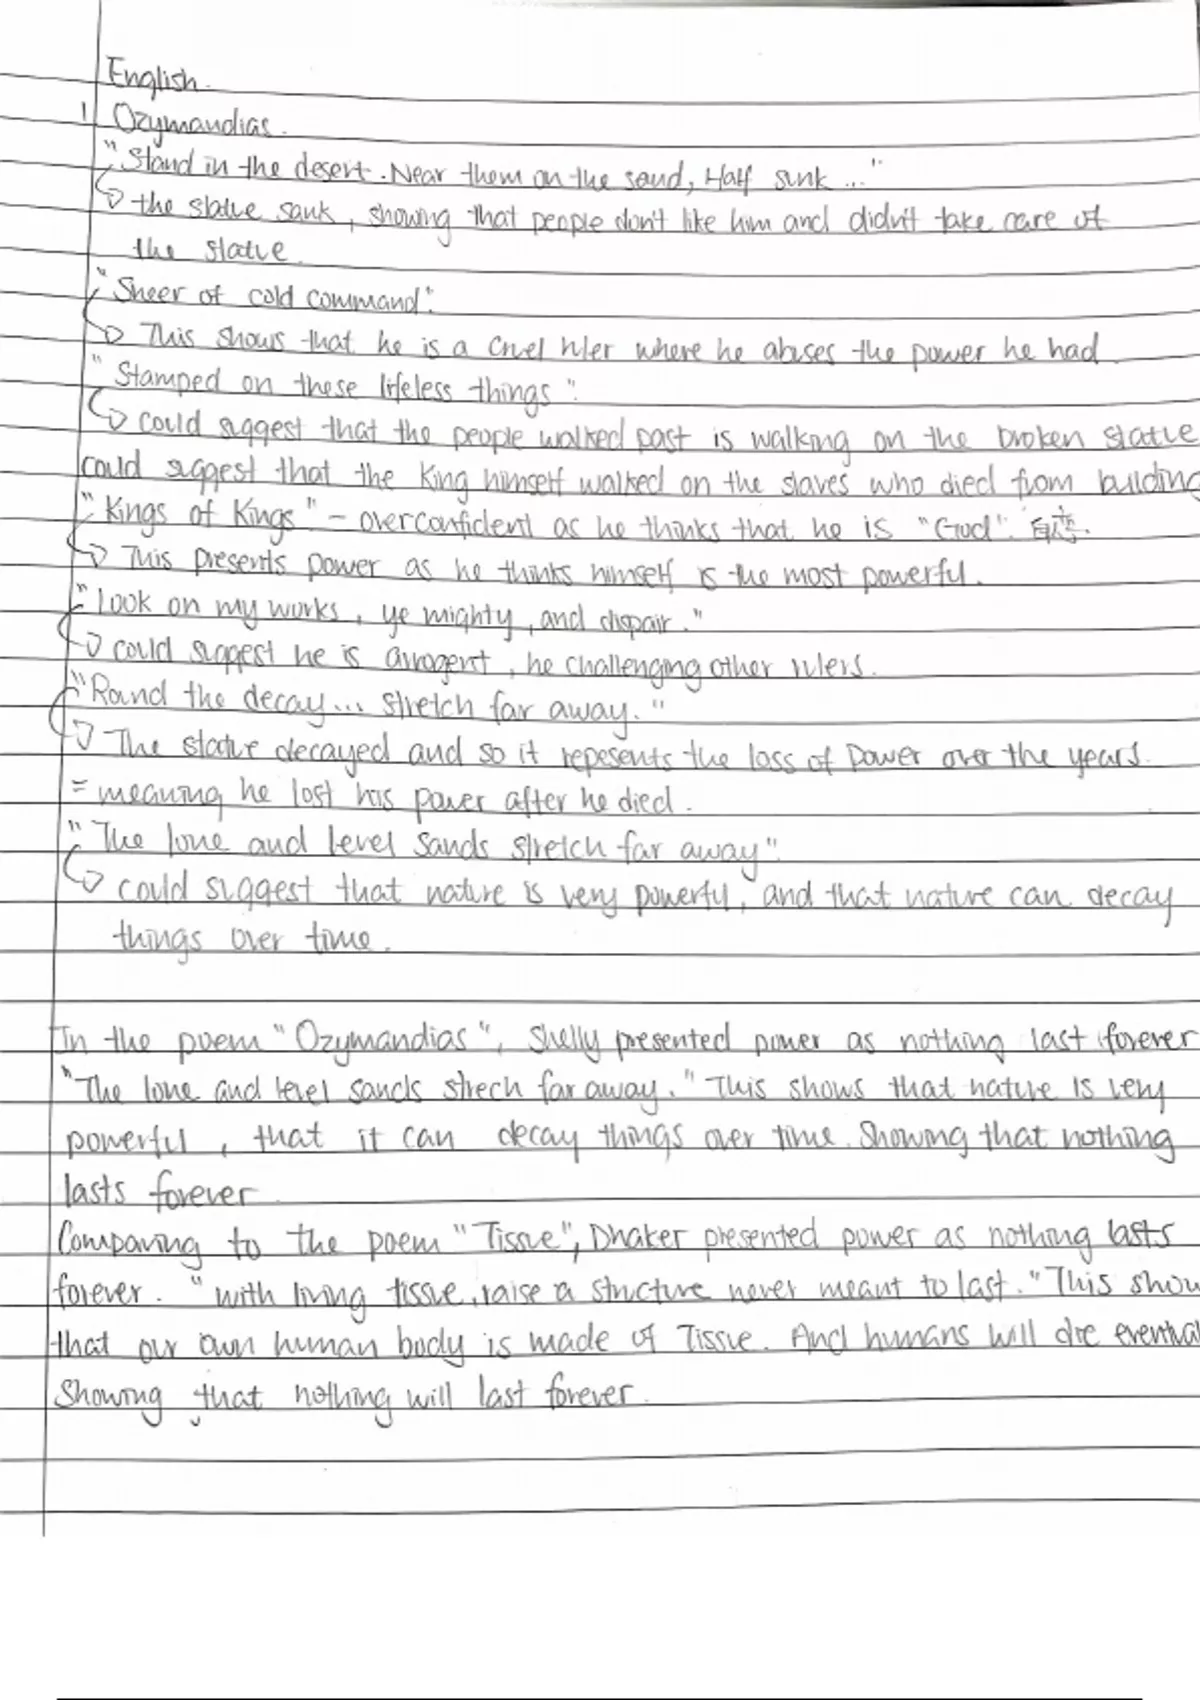 English.
1 Ozymandias.
"Stand in the desert. Near them on the sand, Half sunk ..."
↳ the statue sank, showing that people don't like him and didn't take care of
the statue.
"Sneer of cold command".
↳ This shows that he is a cruel ruler where he abuses the power he had.
"Stamped on these lifeless things".
↳ could suggest that the people walked past is walking on the broken statue
could suggest that the King himself walked on the slaves who died from building
"Kings of Kings" - overconfident as he thinks that he is "God". 自恋.
↳ This presents power as he thinks himself is the most powerful.
"look on my works, ye mighty, and dispair."
↳ could suggest he is arrogent, he challenging other rulers.
"Round the decay... stretch far away."
↳ The statue decayed and so it repesents the loss of power over the years.
= meaning he lost his power after he died.
"The lone and level sands stretch far away".
↳ could suggest that nature is very powerful, and that nature can decay
things over time.
In the poem "Ozymandias", Shelly presented power as nothing last forever
"The lone and level sands strech far away." This shows that nature is very
powerful, that it can decay things over time. Showing that nothing
lasts forever
Comparing to the poem "Tissue", Dhaker presented power as nothing lasts
forever. "with living tissue, raise a structure never meant to last." This show
that our own human body is made of Tissue. And humans will die eventual
Showing that nothing will last forever.